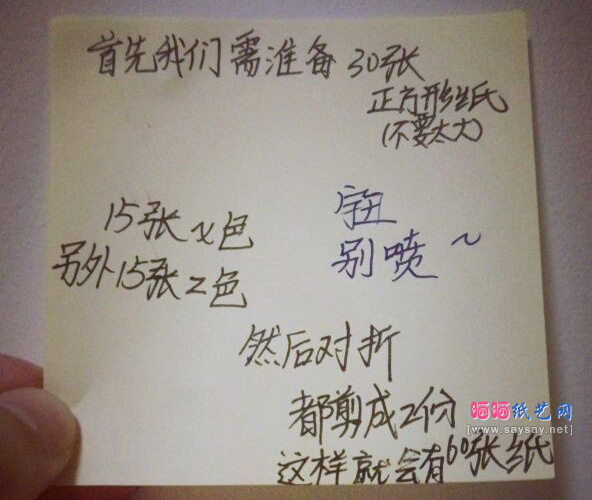 首先我们需准备30张
正方形纸
(不要太大)
15张x色
另外15张z色
字丑
别喷~
然后对折
都剪成2份
这样就会有60张纸
晒晒纸艺网
[www.saysay.net]